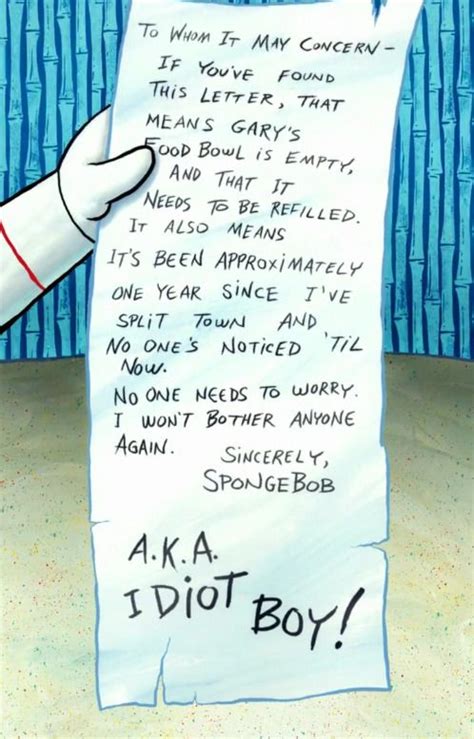 To Whom It May Concern –
If You've Found
This Letter, That
Means Gary's
Food Bowl is Empty,
And That It
Needs To Be Refilled.
It Also Means
It's Been Approximately
One Year Since I've
Split Town And
No One's Noticed 'Til
Now.
No One Needs To Worry.
I Won't Bother Anyone
Again.
Sincerely,
SpongeBob
A.K.A.
Idiot Boy!